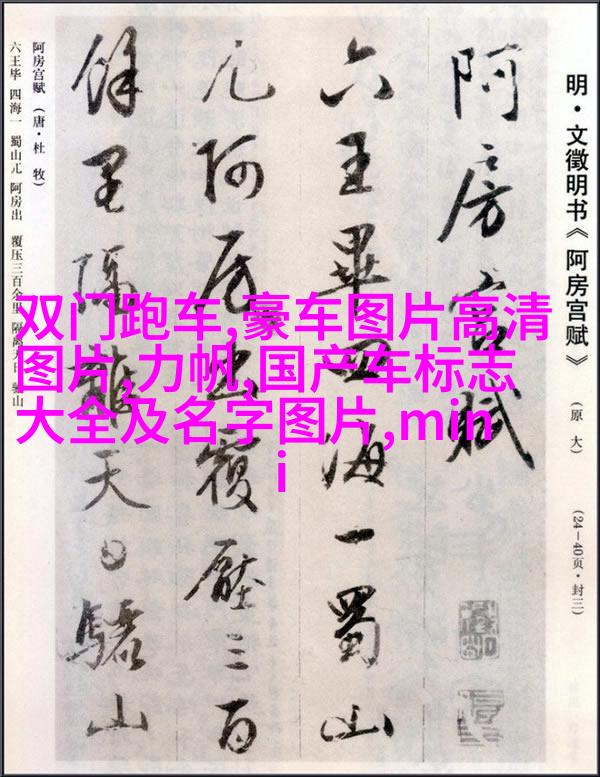 明·文徵明书《阿房宫赋》(原大) (24—40页·封三)
阿房宫賦
六王畢四海一蜀山
兀阿房出覆壓三百
餘里隔離天日驪山
阿房宫赋(唐·杜牧)
六王毕 四海一 蜀山兀 阿房出 覆压三百余里 隔离天日 骊山
双门跑车,豪车图片高清
图片,力帆,国产车标志
大全及名字图片,min
i